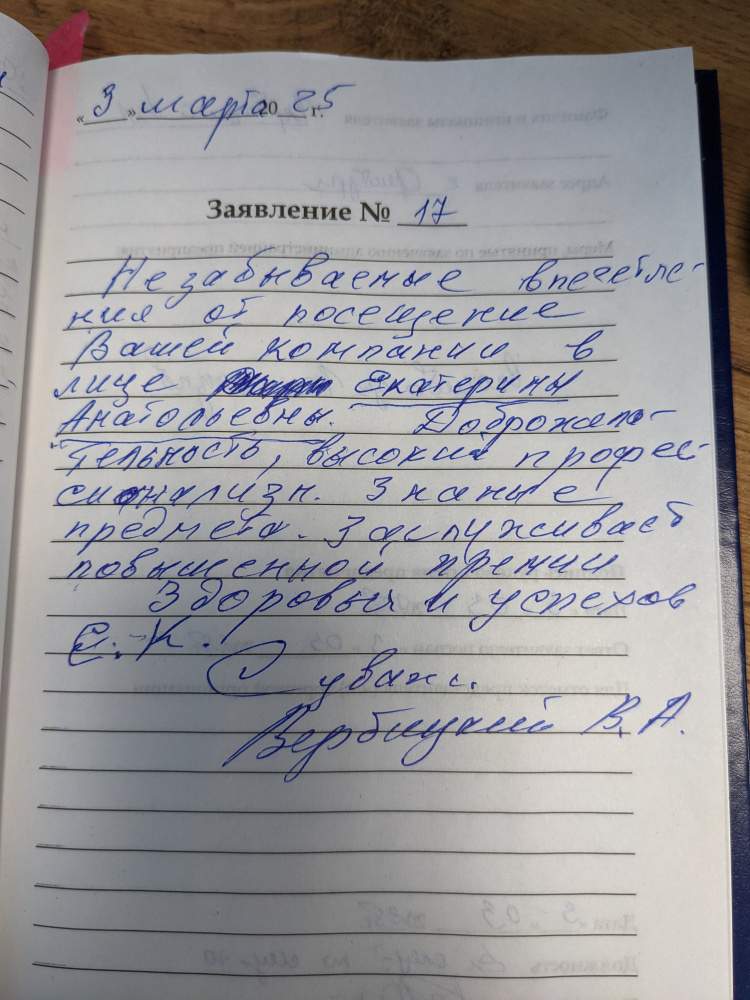 «3» марта 2025 г.
Заявление № 17
Незабываемые впечетле-
ния от посещение
Вашей компании в
лице Екатерины
Анатольевны. Доброжела-
тельность, высокий профес-
сионализм. Знание
предмета. Заслуживает
повышенной премии
Здоровья и успехов
Е. К.
С уваж.
Вербицкий В. А.